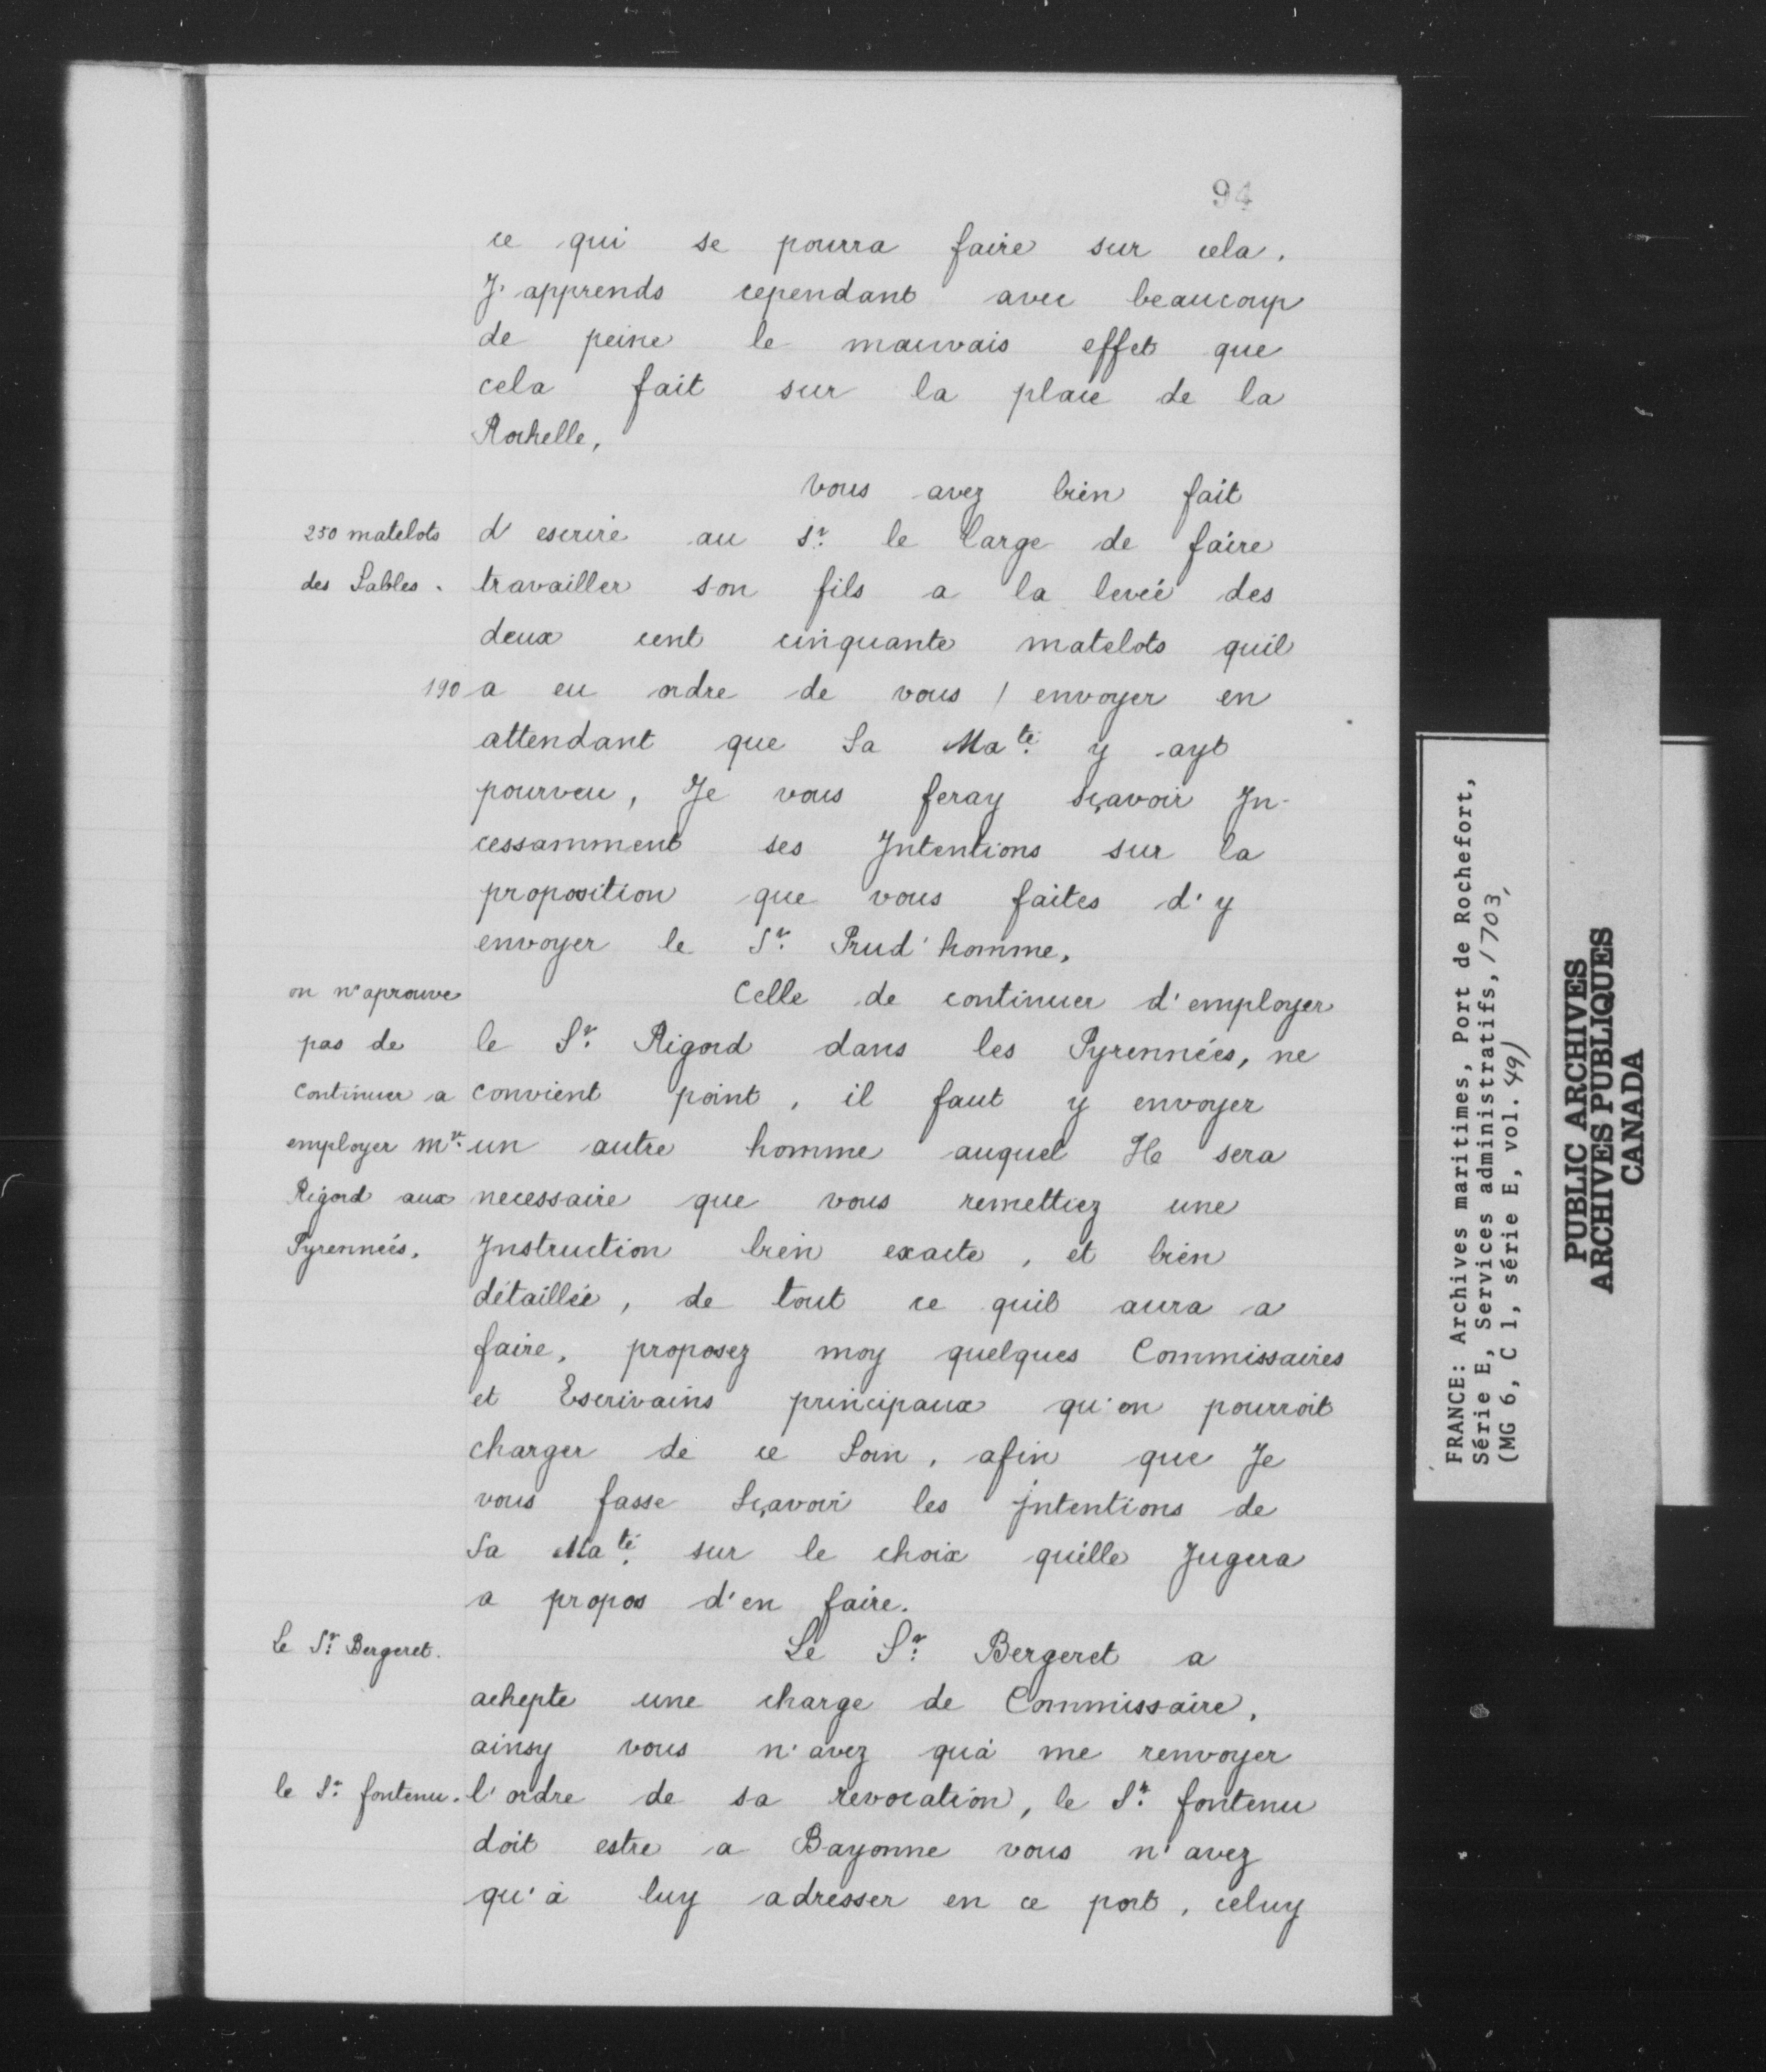 94
ce qui se pourra faire sur cela.
J'apprends cependant avec beaucoup
de peine le mauvais effet que
cela fait sur la place de la
Rochelle,
vous avez bien fait
250 matelots d'escrire au Sr. le large de faire
des Sables. travailler son fils a la levée des
deux cent cinquante matelots quil
190 a eu ordre de vous / envoyer en
attendant que Sa Ma.té y ayt
pourveu, Je vous feray sçavoir In-
cessamment ses Intentions sur la
proposition que vous faites d'y
envoyer le Sr. Prud'homme.
on n'aprouve Celle de continuer d'employer
pas de le Sr. Rigord dans les Pyrennées, ne
continuer a convient point, il faut y envoyer
employer Mr. un autre homme auquel Il sera
Rigord aux necessaire que vous remettiez une
Pyrennées. Instruction bien exacte, et bien
détaillée, de tout ce quil aura a
faire, proposez moy quelques Commissaires
et Escrivains principaux qu'on pourroit
charger de ce Soin, afin que Je
vous fasse Sçavoir les jntentions de
Sa Ma.té sur le choix qu'elle Jugera
a propos d'en faire.
Le Sr. Bergeret. Le Sr. Bergeret a
achepte une charge de Commissaire,
ainsy vous n'avez qu'à me renvoyer
le Sr. fontenu. l'ordre de sa revocation, le Sr. fontenu
doit estre a Bayonne vous n'avez
qu'à luy adresser en ce port, celuy
FRANCE: Archives maritimes, Port de Rochefort,
Série E, Services administratifs, 1703,
(MG 6, C 1, série E, vol. 49)
PUBLIC ARCHIVES
ARCHIVES PUBLIQUES
CANADA